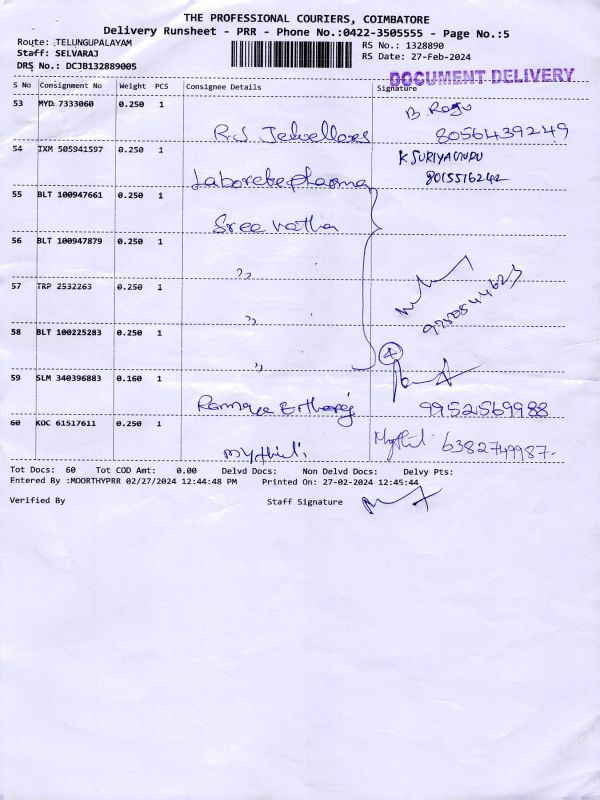 THE PROFESSIONAL COURIERS, COIMBATORE
Delivery Runsheet - PRR - Phone No.:0422-3505555 - Page No.:5
Route: TELUNGUPALAYAM
Staff: SELVARAJ
DRS No.: DCJB132889005
RS No.: 1328890
RS Date: 27-Feb-2024
DOCUMENT DELIVERY
S No Consignment No Weight PCS Consignee Details Signature
53 MYD 7333060 0.250 1
R.S Jewellers B. Ragu 8056439249
54 IXM 505941597 0.250 1
Laborate pharma K SURIYA 8015516242
55 BLT 100947661 0.250 1
Sree vatha
56 BLT 100947879 0.250 1
,,
57 TRP 2532263 0.250 1
,,
58 BLT 100225283 0.250 1
,, 4
59 SLM 340396883 0.160 1
9952569988
60 KOC 61517611 0.250 1
Mythili Mythili 6382749987.
Tot Docs: 60 Tot COD Amt: 0.00 Delvd Docs: Non Delvd Docs: Delvy Pts:
Entered By :MOORTHYPRR 02/27/2024 12:44:48 PM Printed On: 27-02-2024 12:45:44
Verified By Staff Signature